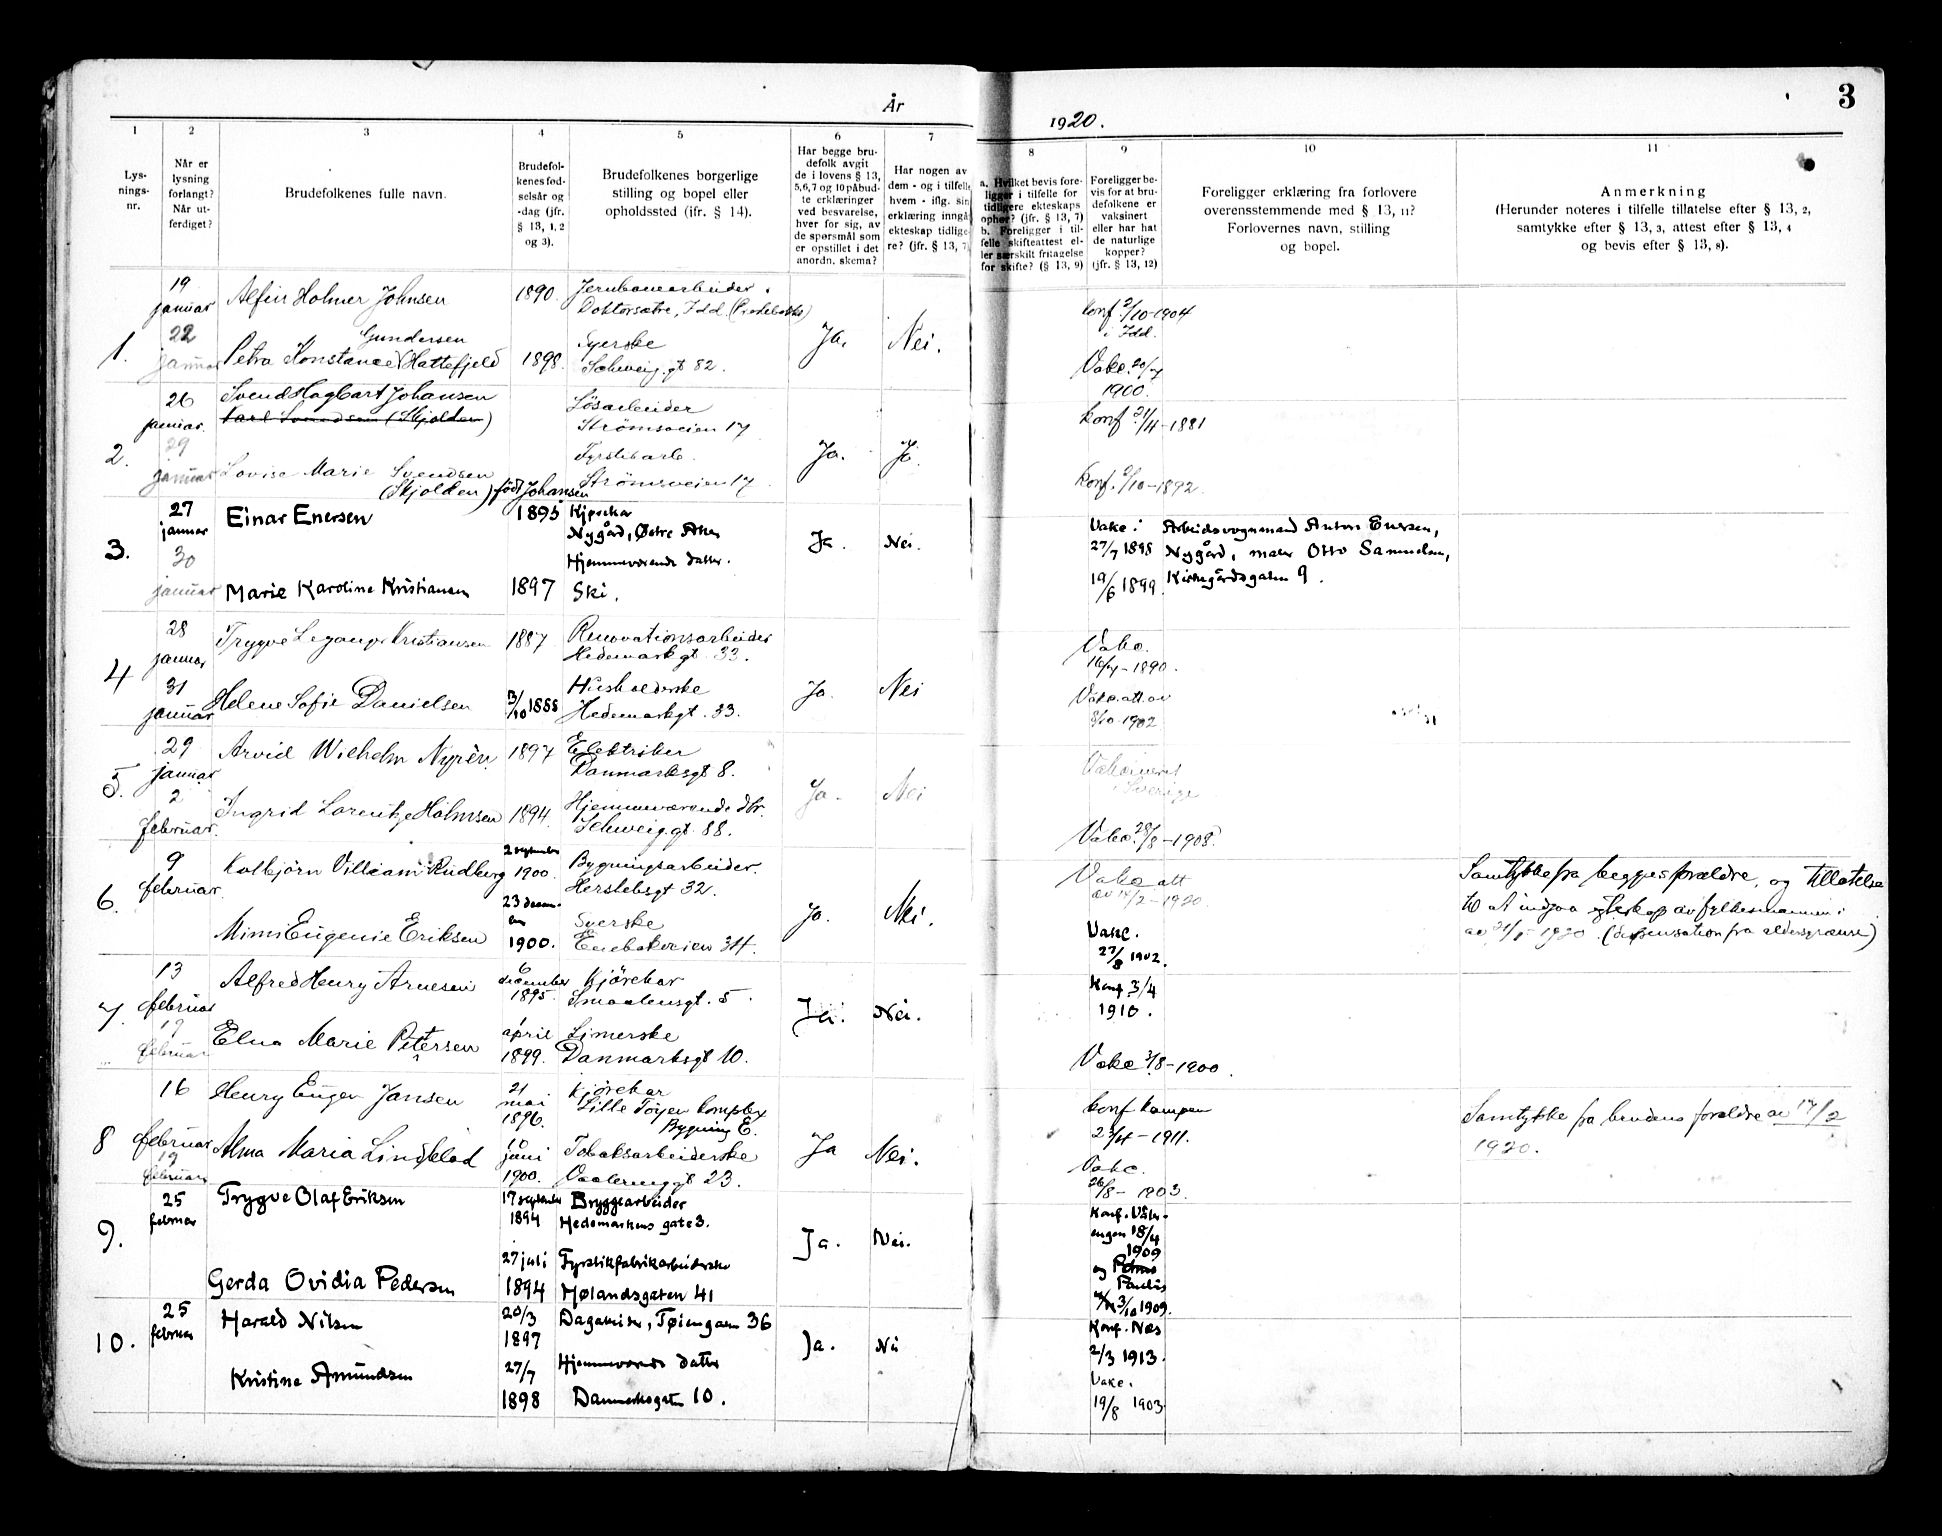 År
1920.
3
1
2
3
4
5
6
7
8
9
10
11
Lys-
nings-
nr.
Når er
lysning
forlangt?
Når ut-
ferdiget?
Brudefolkenes fulle navn.
Brudefol-
kenes fød-
selsår og
-dag (jfr.
§ 13, 1, 2
og 3).
Brudefolkenes borgerlige
stilling og bopel eller
opholdssted (ifr. § 14).
Har begge bru-
defolk avgit
de i lovens § 13,
5,6,7 og 10 påbud-
te erklæringer
ved besvarelse,
hver for sig, av
de spørsmål som
er opstillet i det
anordn. skema?
Har nogen av
dem - og i tilfelle
hvem - iflg. sin
erklæring inngå
ekteskap tidlige-
re? (jfr. § 13, 7)
a. Hvilket bevis fore-
ligger i tilfelle for
tidligere ekteskaps
ophør? (jfr. § 13, 7)
b. Foreligger i til-
felle skifteattest el-
ler særskilt fritagelse
for skifte? (§ 13, 9)
Foreligger be-
vis for at bru-
defolkene er
vaksinert
eller har hat
de naturlige
kopper?
(jfr. § 13, 12)
Foreligger erklæring fra forlovere
overensstemmende med § 13, 11?
Forlovernes navn, stilling
og bopel.
Anmerkning
(Herunder noteres i tilfelle tillatelse efter § 13, 2,
samtykke efter § 13, 3, attest efter § 13, 4
og bevis efter § 13, 8).
1.
19
januar
Alfin Holmer Johnsen
1890.
Jernbanearbeider.
Doktorsætre, Idd.
konf. 2/10-1904
i Idd.
22
januar
Gundersen
Petra Konstance (Hattefjeld
1898.
Syerske
Schweig.gt 82.
Ja.
Nei.
Vakc. 20/7
1900.
2.
26
januar.
Svend Hagbart Johansen
Karl Svendsen (Skjolden)
Løsarbeider
Strömsveien 17
konf 21/4-1881
29
januar
Lovise Marie Svendsen
(Skjolden) født Johansen
Fyrstikarb.
Strömsveien 17.
Ja.
Ja
Konf. 2/10-1892.
3.
27
januar
Einar Enersen
1895
Kjørekar
Nygård, Østre Aker
Ja.
Nei.
Vakc. i
27/7 1895
Arbeidsvognmand Anton Enersen,
Nygård, maler Otto Samuelsen,
Kirkegårdsgaten 9.
30
januar
Marie Karoline Kristiansen
1897
Hjemmeværende datter.
Ski.
19/6 1899
4
28
januar
Trygve Legangr Kristiansen
1887
Renovationsarbeider
Hedemarkgt. 33.
Vakc.
16/7-1890.
31
januar
Helene Sofie Danielsen
3/10 1888
Husholderske
Hedemarkgt. 33.
Ja.
Nei
Vakc. att av
8/10-1902
5.
29
januar
Arvid Wilhelm Nyrén
1897
Elektriker
Danmarksgt 8.
Ja.
Nei
Vakcineret
i Sverige
2
februar.
Ingrid Lorentze Holmsen
1894.
Hjemmeværende dtr.
Schweig.gt. 88.
Vakc. 28/8-1908.
6.
9
februar.
Kolbjörn Villiam Rudberg
2 september
1900.
Bygningsarbeider.
Herslebsgt 32.
Vakc att
av 14/2-1920.
Samtykke fra begges forældre, og tillatelse
til at indgaa egteskap av fylkesmannen i
av 21/1-1920. (dispensation fra aldersgrænse)
Mimi Eugenie Eriksen
23 decem-
ber
1900.
Syerske
Enebakveien 34.
Ja.
Nei.
Vakc.
27/8 1902.
7.
13
februar
Alfred Henry Arnesen
6
december
1895.
Kjörekar
Smaalensgt. 5.
Ja.
Nei.
Konf. 3/4
1910.
17
februar
Elna Marie Petersen
1
april
1899.
Limerske
Danmarksgt 10.
Vakc. 3/8-1900.
8
16
februar
Henry Eugen Jansen
21
mai
1896.
Kjörekar
Lille Töyen Komplex
Bygning E.
konf Kampen
23/4-1911.
Samtykke fra brudens forældre av 17/2
1920.
19
februar
Alma Maria Lindblad
10
juni
1900.
Tobaksarbeiderske
Vaalerenggt 23.
Ja
Nei.
Vakc.
26/8-1903.
9.
25
februar
Trygve Olaf Eriksen
17 september
1894
Bryggearbeider
Hedemarkens gate 3.
Ja.
Nei.
Konf. Våler-
engen 18/4
1909
Gerda Ovidia Pedersen
27 juli
1894
Fyrstikfabrikarbeiderske
Hølandsgaten 41
og Petrus
Paulus
3/10 1909.
10.
25
februar
Harald Nilsen
20/3
1897
Dagarbeider, Tøiengaten 36
Ja.
Nei
Konf. Næs
2/3 1913.
Kristine Amundsen
27/7
1898
Hjemmeværende datter
Danmarksgaten 10.
Vakc.
19/8 1903